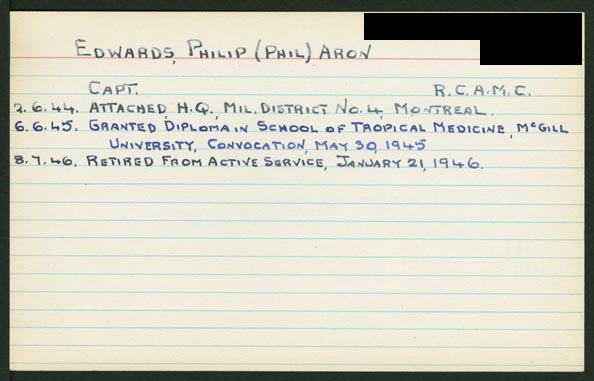 EDWARDS, PHILIP (PHIL) ARON
CAPT. R.C.A.M.C.
2.6.44. ATTACHED H.Q. MIL. DISTRICT NO. 4, MONTREAL.
6.6.45. GRANTED DIPLOMA IN SCHOOL OF TROPICAL MEDICINE, McGILL
UNIVERSITY, CONVOCATION, MAY 30, 1945
8.7.46. RETIRED FROM ACTIVE SERVICE, JANUARY 21, 1946.